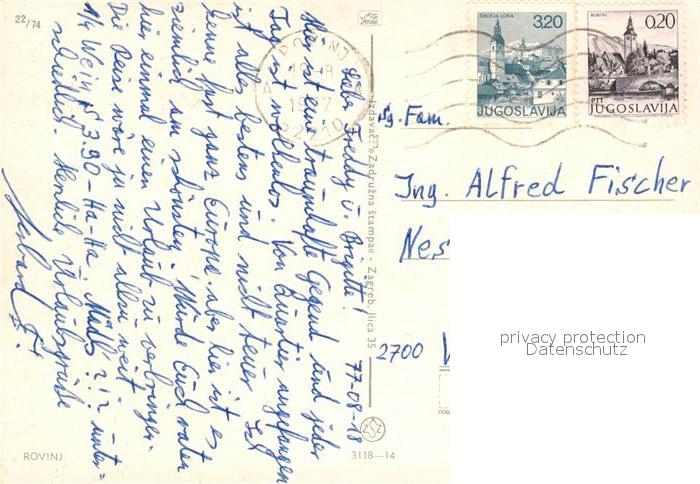 22/74
77-08-18
Liebe Freddy u. Brigitte!
Hier ist ein traumhafte Gegend und jeder
Tag ist wolkenlos. Von angefangen
ist alles bestens und nicht teuer. Ich
kenne fast ganz Europa aber hier ist es
ziemlich am schönsten. Würde Euch raten
hier einmal einen Urlaub zu verbringen.
Die Reise wäre ja nicht allzu weit.
1/4 Wein S 3.90 - Ha-Ha Mädls !?! unter=
schiedlich. Herzliche Urlaubsgrüße
ROVINJ
3118—14
Izdavač: »Zadružna štampa« - Zagreb, Ilica 35
ROVINJ
18-8
1977
52210
ŠKOFJA LOKA
3,20
JUGOSLAVIJA
BOHINJ
0.20
PTT
JUGOSLAVIJA
Sg. Fam.
Ing. Alfred Fischer
Nes
2700
privacy protection
Datenschutz